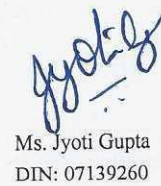 Jyoti G
Ms. Jyoti Gupta
DIN: 07139260